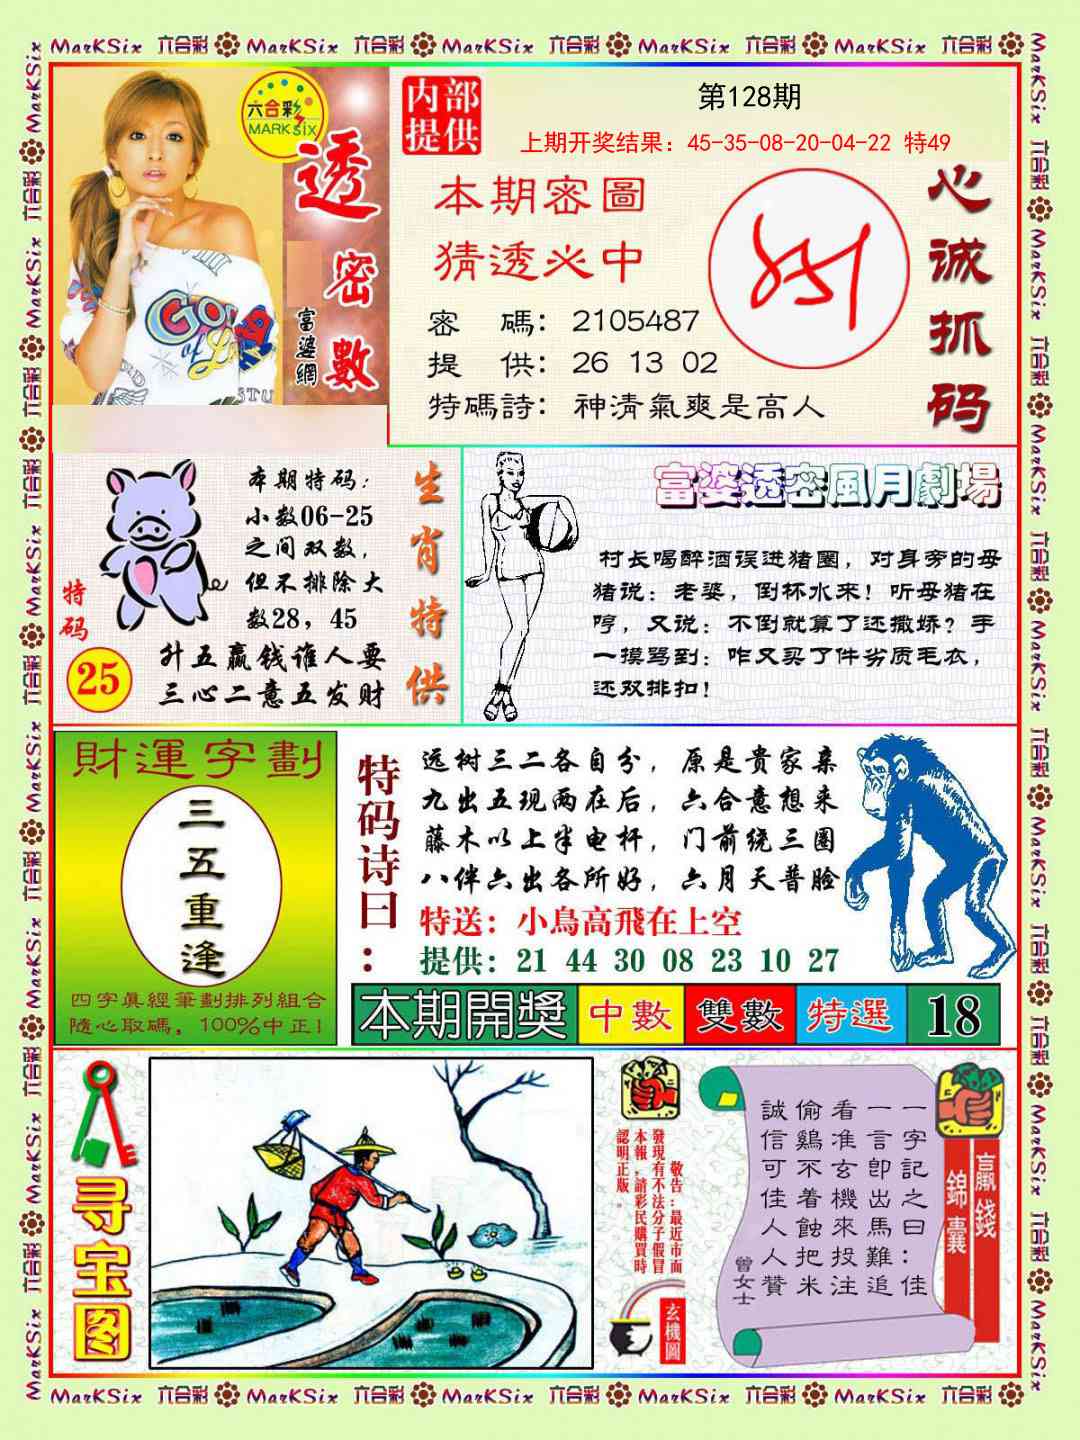 MarKSix 六合彩 MarKSix 六合彩 MarKSix 六合彩 MarKSix 六合彩 MarKSix 六合彩
六合彩
MARK SIX
透密數
富婆網
内部
提供
第128期
上期开奖结果：45-35-08-20-04-22 特49
本期密圖
猜透必中
密 碼：2105487
提 供：26 13 02
特碼詩：神清氣爽是高人
心诚抓码
本期特码：
小数06-25
之间双数，
但不排除大
数28，45
特码
25
升五赢钱谁人要
三心二意五发财
生肖特供
富婆透密風月劇場
村长喝醉酒误进猪圈，对身旁的母
猪说：老婆，倒杯水来！听母猪在
哼，又说：不倒就算了还撒娇？手
一摸骂到：咋又买了件劣质毛衣，
还双排扣！
財運字劃
三五重逢
四字真經筆劃排列組合
隨心取碼，100%中正！
特码诗曰：
远树三二各自分，原是贵家亲
九出五现两在后，六合意想来
藤木以上半电杆，门前绕三圈
八伴六出各所好，六月天普脸
特送：小鳥高飛在上空
提供：21 44 30 08 23 10 27
本期開獎 中數 雙數 特選 18
寻宝图
敬告：最近市面
發現有不法分子假冒
本報，請彩民購買時
認明正版。
玄機圖
一字記之曰：佳
一言即出馬難追
看准玄機來投注
偷鷄不着蝕把米
誠信可佳人人贊
曾女士
贏錢
錦囊
MarKSix 六合彩 MarKSix 六合彩 MarKSix 六合彩 MarKSix 六合彩 MarKSix 六合彩